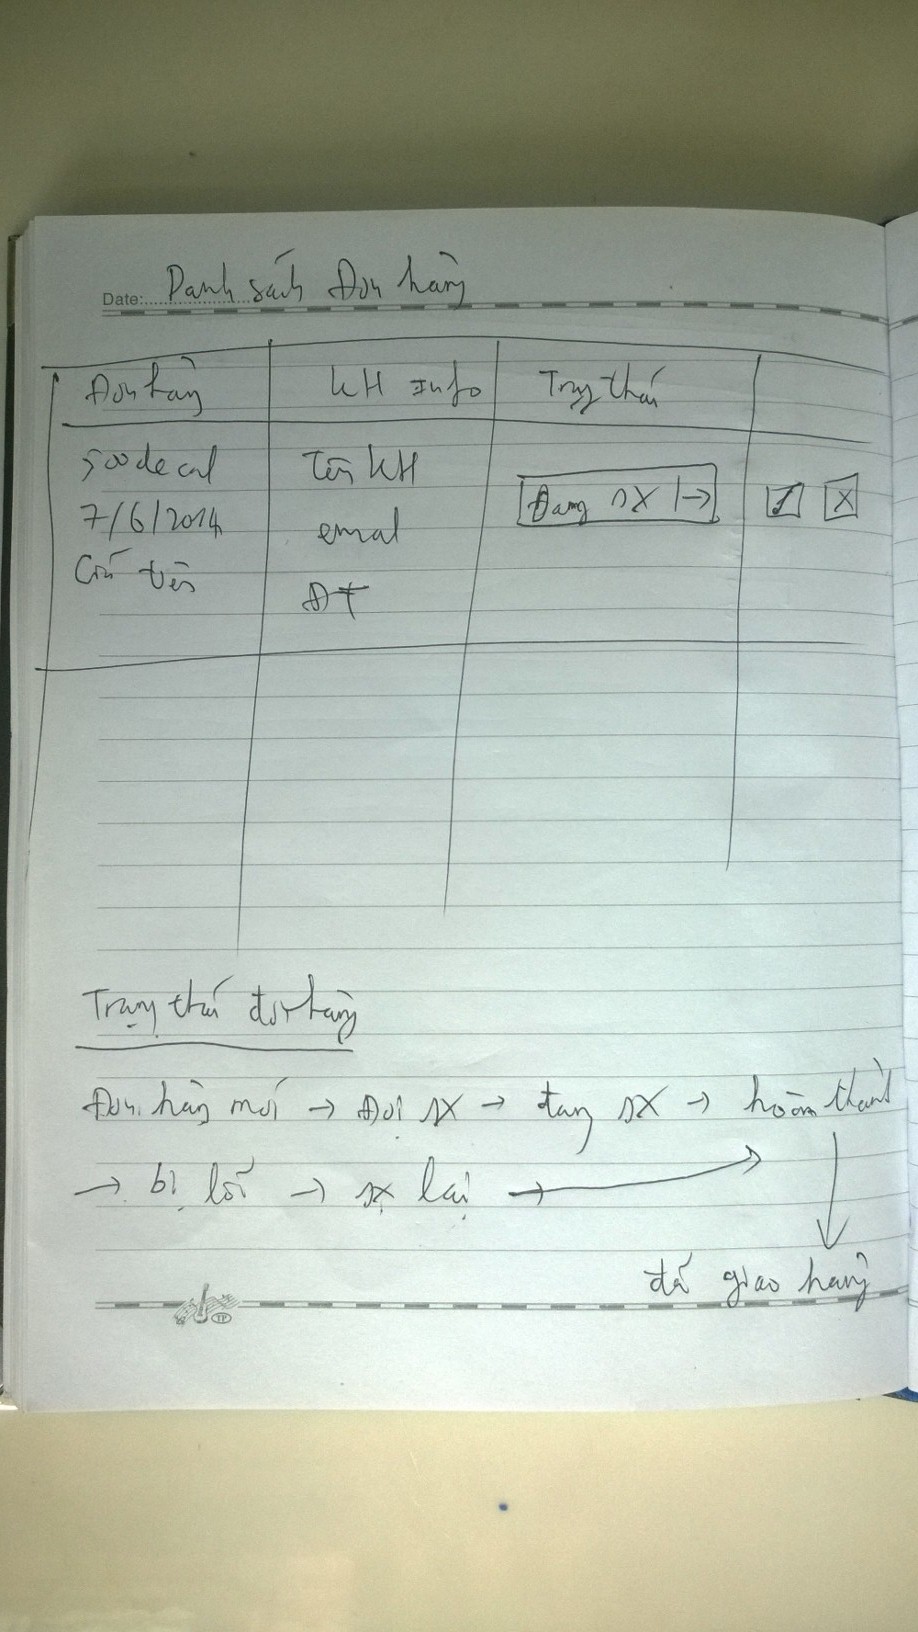 Date: Danh sách Đơn hàng
Đơn hàng KH Info Trạng thái
500 decal Tên KH
Đang SX → X
7/6/2014 email
Cấn tiền ĐT
Trạng thái đơn hàng
Đơn hàng mới → Đợi SX → đang SX → hoàn thành
→ bị lỗi → sx lại →
đã giao hàng
TP